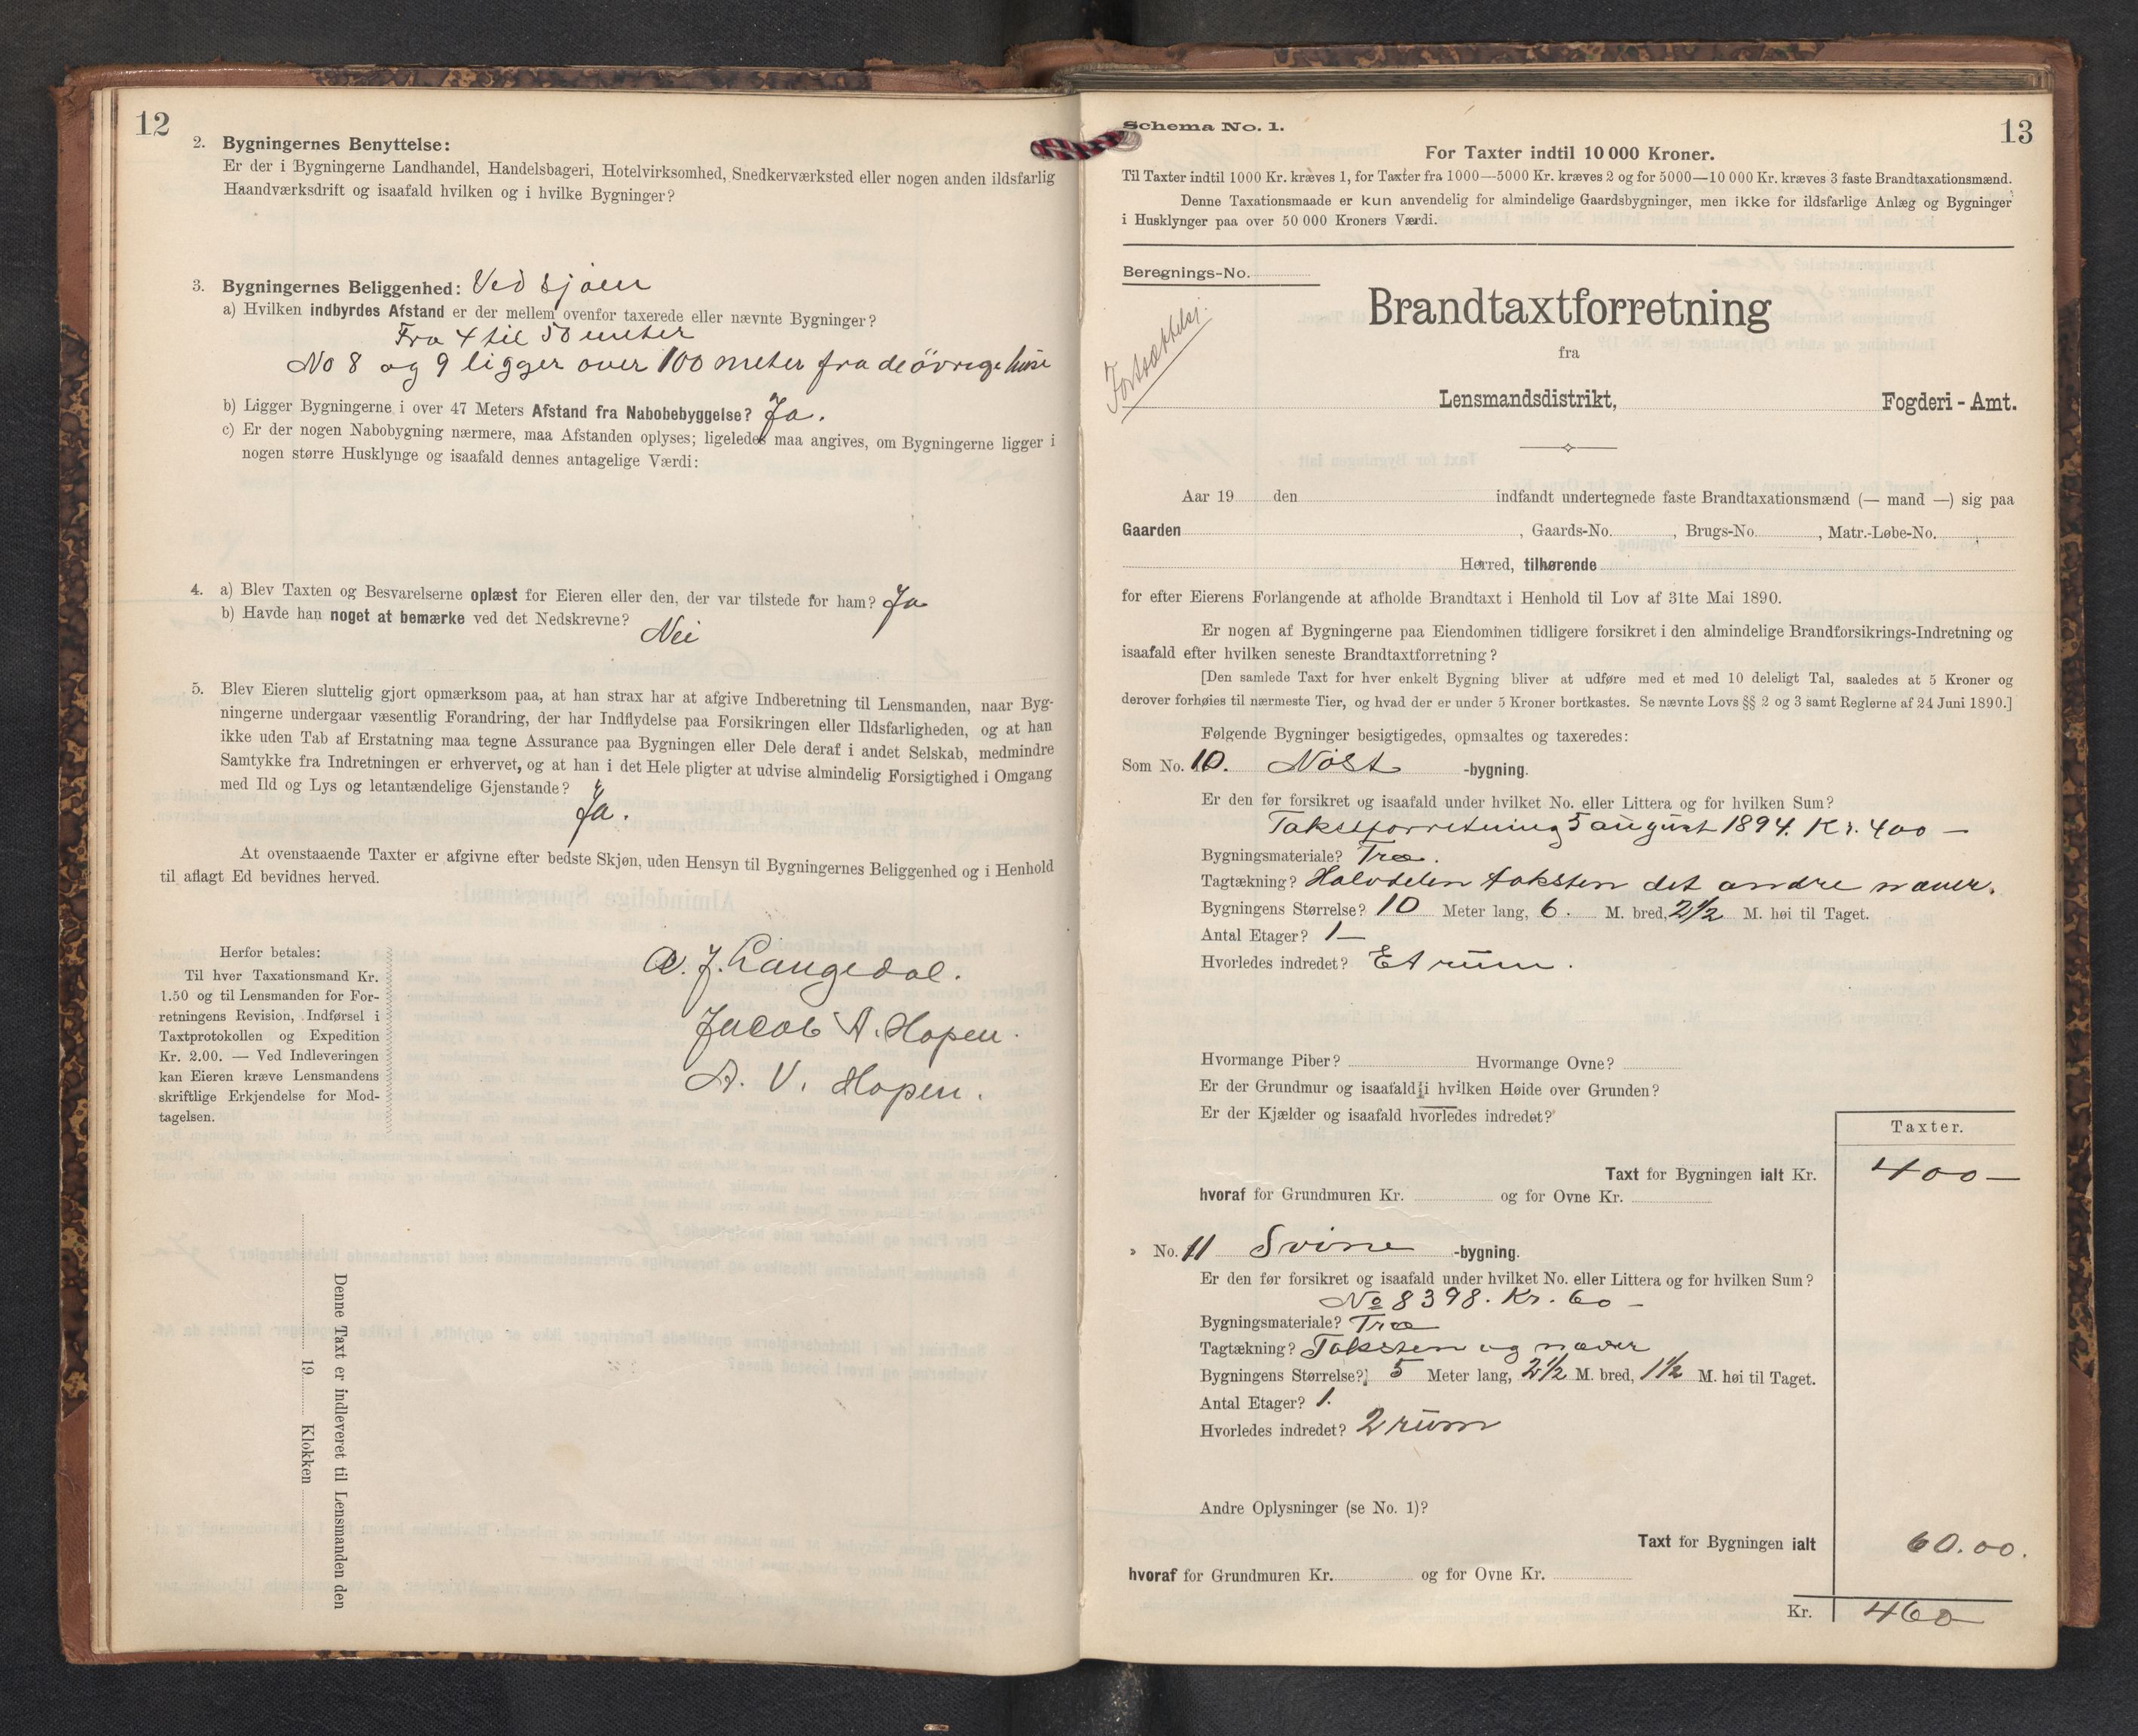 12
2. Bygningernes Benyttelse:
Er der i Bygningerne Landhandel, Handelsbageri, Hotelvirksomhed, Snedkerværksted eller nogen anden ildsfarlig
Haandværksdrift og isaafald hvilken og i hvilke Bygninger?
3. Bygningernes Beliggenhed: Ved sjøen
a) Hvilken indbyrdes Afstand er der mellem ovenfor taxerede eller nævnte Bygninger?
Fra 4 til 50 meter
No 8 og 9 ligger over 100 meter fra de övrige huse
b) Ligger Bygningerne i over 47 Meters Afstand fra Nabobebyggelse? Ja.
c) Er der nogen Nabobygning nærmere, maa Afstanden oplyses; ligeledes maa angives, om Bygningerne ligger i
nogen større Husklynge og isaafald dennes antagelige Værdi:
4. a) Blev Taxten og Besvarelserne oplæst for Eieren eller den, der var tilstede for ham? Ja
b) Havde han noget at bemærke ved det Nedskrevne?
Nei
5. Blev Eieren sluttelig gjort opmærksom paa, at han strax har at afgive Indberetning til Lensmanden, naar Byg-
ningerne undergaar væsentlig Forandring, der har Indflydelse paa Forsikringen eller Ildsfarligheden, og at han
ikke uden Tab af Erstatning maa tegne Assurance paa Bygningen eller Dele deraf i andet Selskab, medmindre
Samtykke fra Indretningen er erhvervet, og at han i det Hele pligter at udvise almindelig Forsigtighed i Omgang
med Ild og Lys og letantændelige Gjenstande?
Ja.
At ovenstaaende Taxter er afgivne efter bedste Skjøn, uden Hensyn til Bygningernes Beliggenhed og i Henhold
til aflagt Ed bevidnes herved.
Herfor betales:
Til hver Taxationsmand Kr.
1.50 og til Lensmanden for For-
retningens Revision, Indførsel i
Taxtprotokollen og Expedition
Kr. 2.00. — Ved Indleveringen
kan Eieren kræve Lensmandens
skriftlige Erkjendelse for Mod-
tagelsen.
A. J. Langedal.
Jacob A. Hopen.
A. V. Hopen.
Denne Taxt er indleveret til Lensmanden den
19 Klokken
13
Schema No. 1.
For Taxter indtil 10 000 Kroner.
Til Taxter indtil 1000 Kr. kræves 1, for Taxter fra 1000—5000 Kr. kræves 2 og for 5000—10 000 Kr. kræves 3 faste Brandtaxationsmænd.
Denne Taxationsmaade er kun anvendelig for almindelige Gaardsbygninger, men ikke for ildsfarlige Anlæg og Bygninger
i Husklynger paa over 50 000 Kroners Værdi.
Beregnings-No.
Fortsættelse.
Brandtaxtforretning
fra
Lensmandsdistrikt, Fogderi - Amt.
Aar 19 den indfandt undertegnede faste Brandtaxationsmænd (— mand —) sig paa
Gaarden , Gaards-No. , Brugs-No. , Matr.-Løbe-No.
Herred, tilhørende
for efter Eierens Forlangende at afholde Brandtaxt i Henhold til Lov af 31te Mai 1890.
Er nogen af Bygningerne paa Eiendommen tidligere forsikret i den almindelige Brandforsikrings-Indretning og
isaafald efter hvilken seneste Brandtaxtforretning?
[Den samlede Taxt for hver enkelt Bygning bliver at udføre med et med 10 deleligt Tal, saaledes at 5 Kroner og
derover forhøies til nærmeste Tier, og hvad der er under 5 Kroner bortkastes. Se nævnte Lovs §§ 2 og 3 samt Reglerne af 24 Juni 1890.]
Følgende Bygninger besigtigedes, opmaaltes og taxeredes:
Som No. 10. Nöst -bygning.
Er den før forsikret og isaafald under hvilket No. eller Littera og for hvilken Sum?
Takstforretning 5 august 1894. Kr. 400 —
Bygningsmateriale? Træ.
Tagtækning? Halvdelen taksten det andre næver.
Bygningens Størrelse? 10 Meter lang, 6. M. bred, 2 1/2 M. høi til Taget.
Antal Etager? 1 —
Hvorledes indredet? Et rum.
Hvormange Piber? Hvormange Ovne?
Er der Grundmur og isaafald i hvilken Høide over Grunden?
Er der Kjælder og isaafald hvorledes indredet?
Taxter.
Taxt for Bygningen ialt Kr. 400 —
hvoraf for Grundmuren Kr. og for Ovne Kr.
» No. 11 Svine -bygning.
Er den før forsikret og isaafald under hvilket No. eller Littera og for hvilken Sum?
No 8398. Kr. 60 —
Bygningsmateriale? Træ
Tagtækning? Taksten og næver
Bygningens Størrelse? 5 Meter lang, 2 1/2 M. bred, 1 1/2 M. høi til Taget.
Antal Etager? 1.
Hvorledes indredet? 2 rum
Andre Oplysninger (se No. 1)?
Taxt for Bygningen ialt 60.00.
hvoraf for Grundmuren Kr. og for Ovne Kr.
Kr. 460